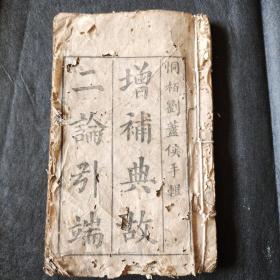 桐栢劉蓋侯手輯
增補典故
二論引端